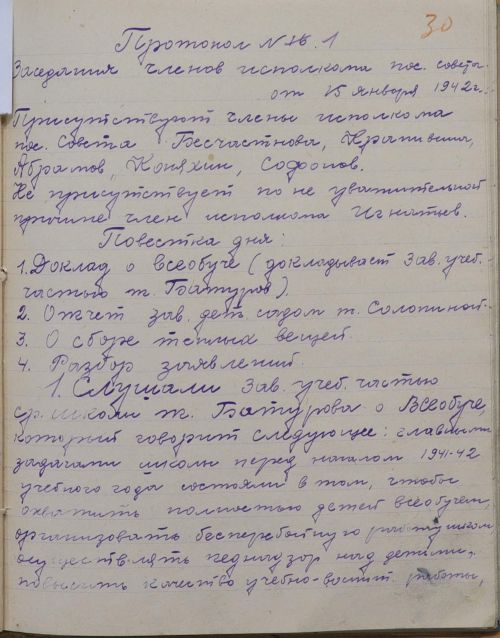 30
Протокол № 1
Заседания членов исполкома пос. совета
от 15 января 1942 г.
Присутствуют члены исполкома
пос. совета Бесчастнова, Крапивина,
Абрамов, Коняхин, Софонов.
Не присутствует по не уважительной
причине член исполкома Игнатьев.
Повестка дня:
1. Доклад о всеобуче (докладывает зав. учеб.
частью т. Батуров).
2. Отчет зав. дет. садом т. Солониной.
3. О сборе теплых вещей.
4. Разбор заявлений.
1. Слушали зав. учеб. частью
ср. школы т. Батурова о Всеобуче,
который говорит следующее: главными
задачами школы перед началом 1941-42
учебного года состояли в том, чтобы
охватить полностью детей всеобучем,
организовать бесперебойную работу школ
осуществлять педнадзор над детьми,
повысить качество учебно-воспит. работы,